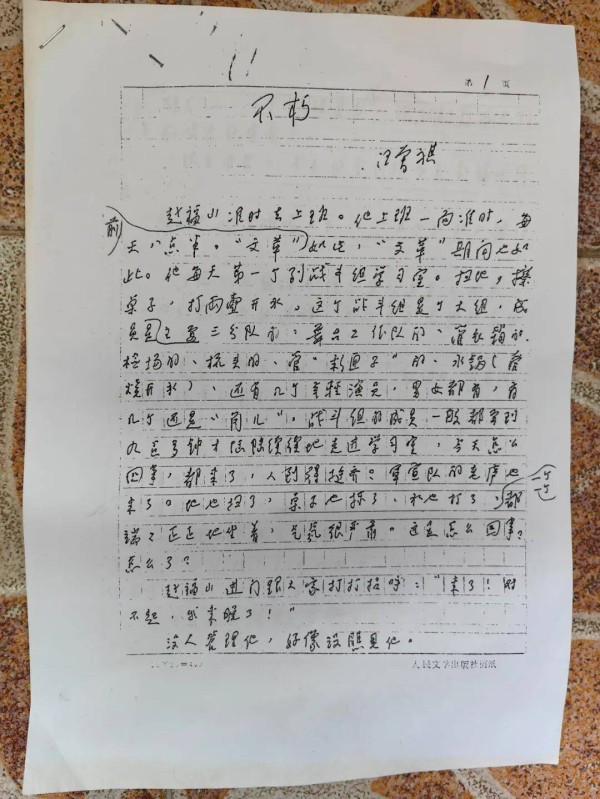 第 1 页
不朽
汪曾祺
赵福山准时去上班。他上班一向准时,每
天八点半。“文革”前如此,“文革”期间也如
此。他每天第一个到战斗组学习室。扫地,擦
桌子,打两壶开水。这个战斗组是个大组,成
员是三分队的:舞台工作队的,管衣箱的、
检场的、梳头的、管“彩匣子”的、水锅(管
烧开水),还有几个年轻演员,男女都有,有
几个还是“角儿”。战斗组的成员一般都要到
九点多钟才陆陆续续地走进学习室,今天怎么
回事,都来了,人到得挺齐?军宣队的老卢也
来了。地也扫了,桌子也抹了,水也打了,一个个都
端端正正地坐着,气氛很严肃。这是怎么回事?
怎么了?
赵福山进门跟大家打打招呼:“来了!对
不起,我来晚了!”
没人答理他,好像没瞧见他。
人民文学出版社稿纸